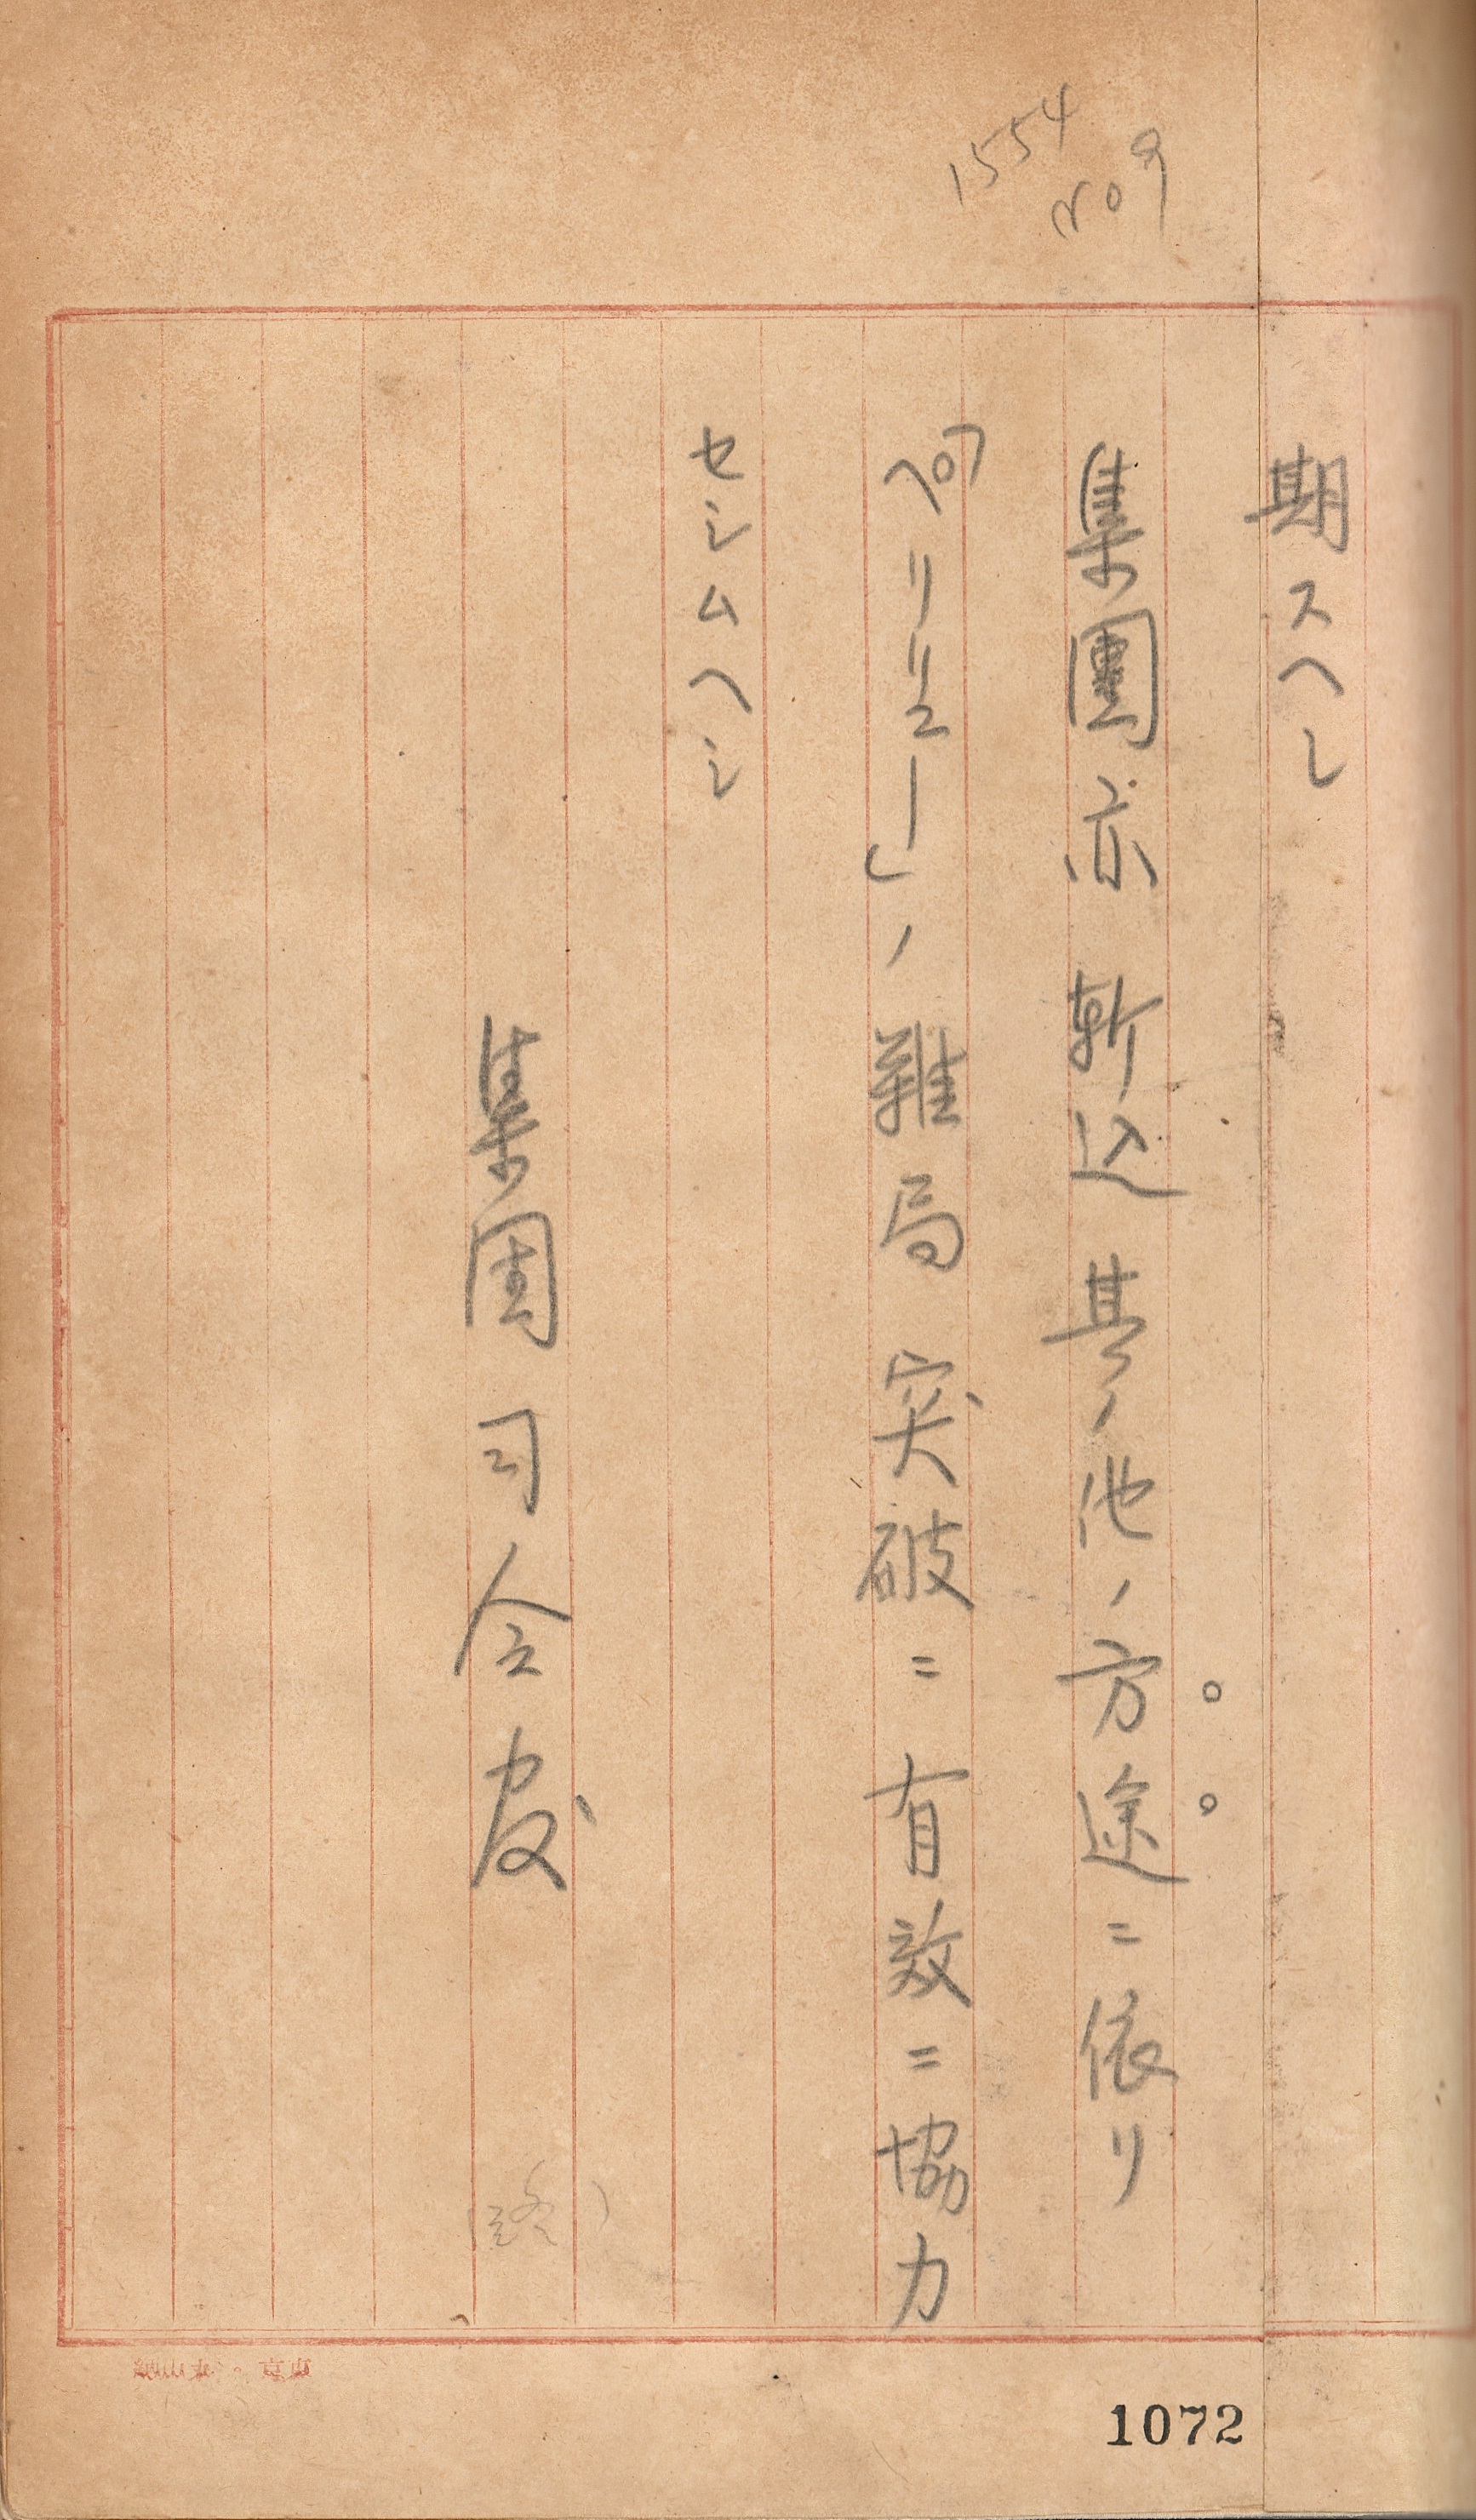 1554
No9
期スヘシ
集團亦斬込其ノ他ノ方途ニ依リ
「ペリリユー」ノ難局突破ニ有效ニ協力
セシムヘシ
集団司令部
(終)
1072